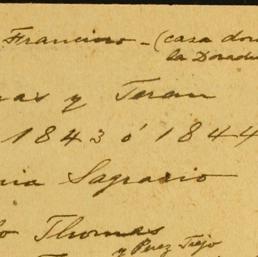 Francisco - (casa don
la Dorada
mas y Teran
1843 ó 1844
nia Sagrario
o Thomas
y Perez Trejo